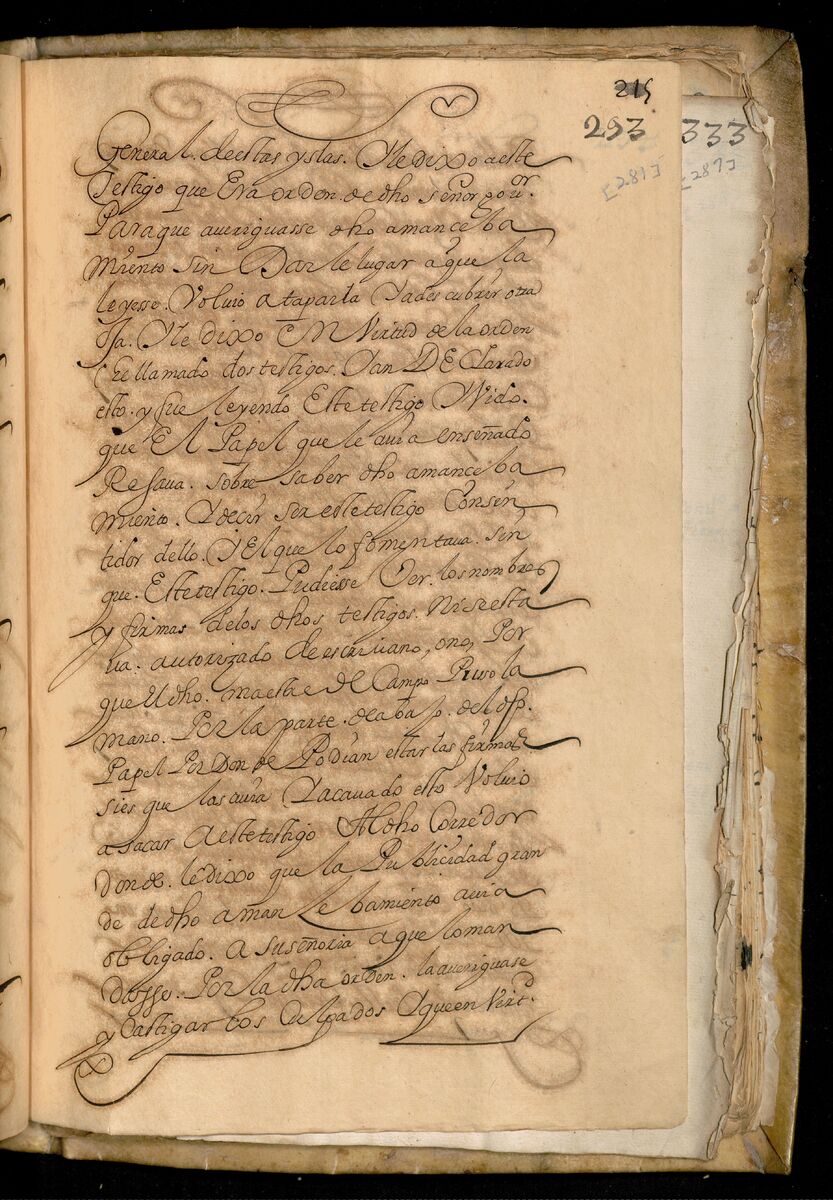 215
293 333
[281] [287]
General. deestas yslas. Yle dixo aeste
Testigo que Era orden. de dho señor gour.
Para que aueriguasse dho amanceba
miento sin Darle lugar aque la
leyesse. Voluio ataparla Yadescubrir otra
Yle dixo En Virtud de la orden
he llamado dos testigos. Yan DEClarado
esto. y fue leyendo Este testigo Vido.
que El Papel que le auia enseñado
Resaua. sobre saber dho amanceba
miento. Ydecir ser este testigo Consen
tidor dello. YEl que lo fomentaua. sin
que. Este testigo. Pudiesse Ver. los nombres
y firmas delos dhos testigos. Ni si esta
ua. autorizado de escriuano, ono, Por
que Eldho. maestre de Campo Puso la
mano. Por la parte. de abajo. del dho.
Papel Por Donde Podian estar las firmas
sies que las auia Yacauado esto Voluio
a sacar Aeste testigo Aldho Corredor
donde. le dixo que la Publicidad gran
de de dho amansebamiento auia
obligado. a suseñoria aque loman
dasse. Por la dha orden. la aueriguase
y Castigar los Culpados Yque en Virtd.